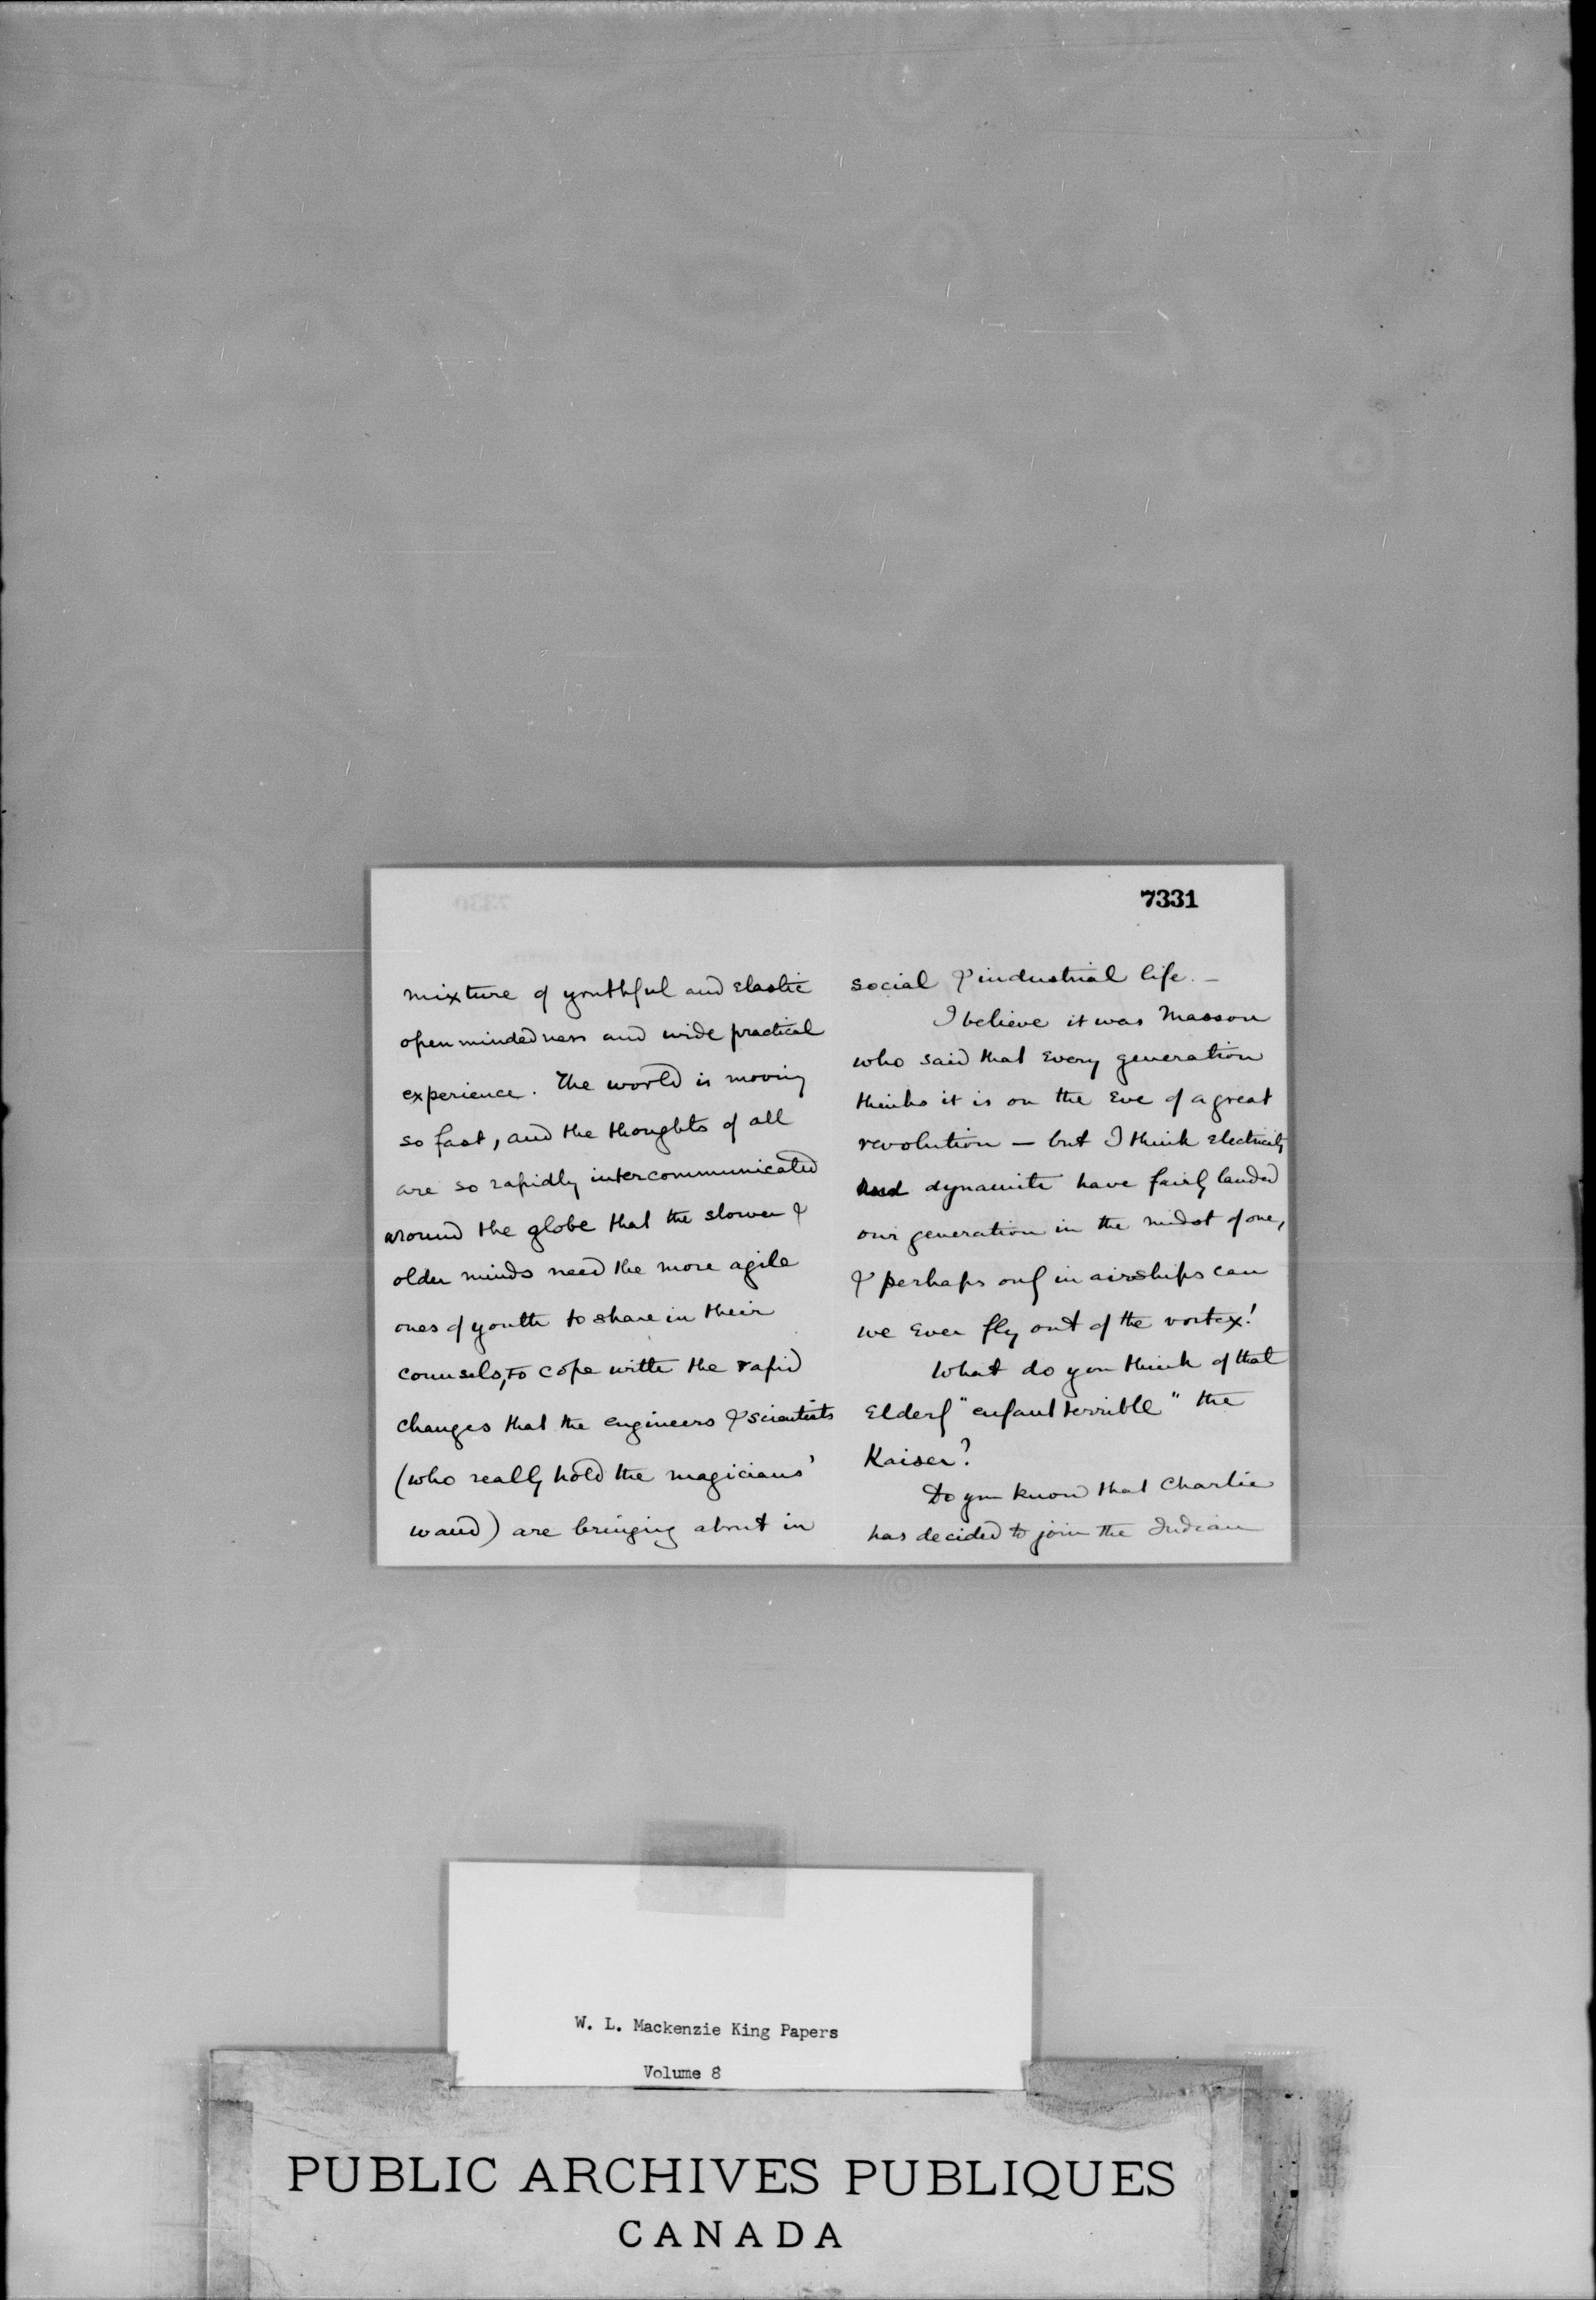 7331
mixture of youthful and elastic
openmindedness and wide practical
experience. The world is moving
so fast, and the thoughts of all
are so rapidly intercommunicated
around the globe that the slower &
older minds need the more agile
ones of youth to share in their
counsels, to cope with the rapid
changes that the engineers & scientists
(who really hold the magicians'
wand) are bringing about in
social & industrial life. —
I believe it was Masson
who said that every generation
thinks it is on the eve of a great
revolution — but I think electricity
and dynamite have fairly landed
our generation in the midst of one,
& perhaps only in airships can
we ever fly out of the vortex!
What do you think of that
elderly "enfant terrible" the
Kaiser?
Do you know that Charlie
has decided to join the Indian
W. L. Mackenzie King Papers
Volume 8
PUBLIC ARCHIVES PUBLIQUES
CANADA